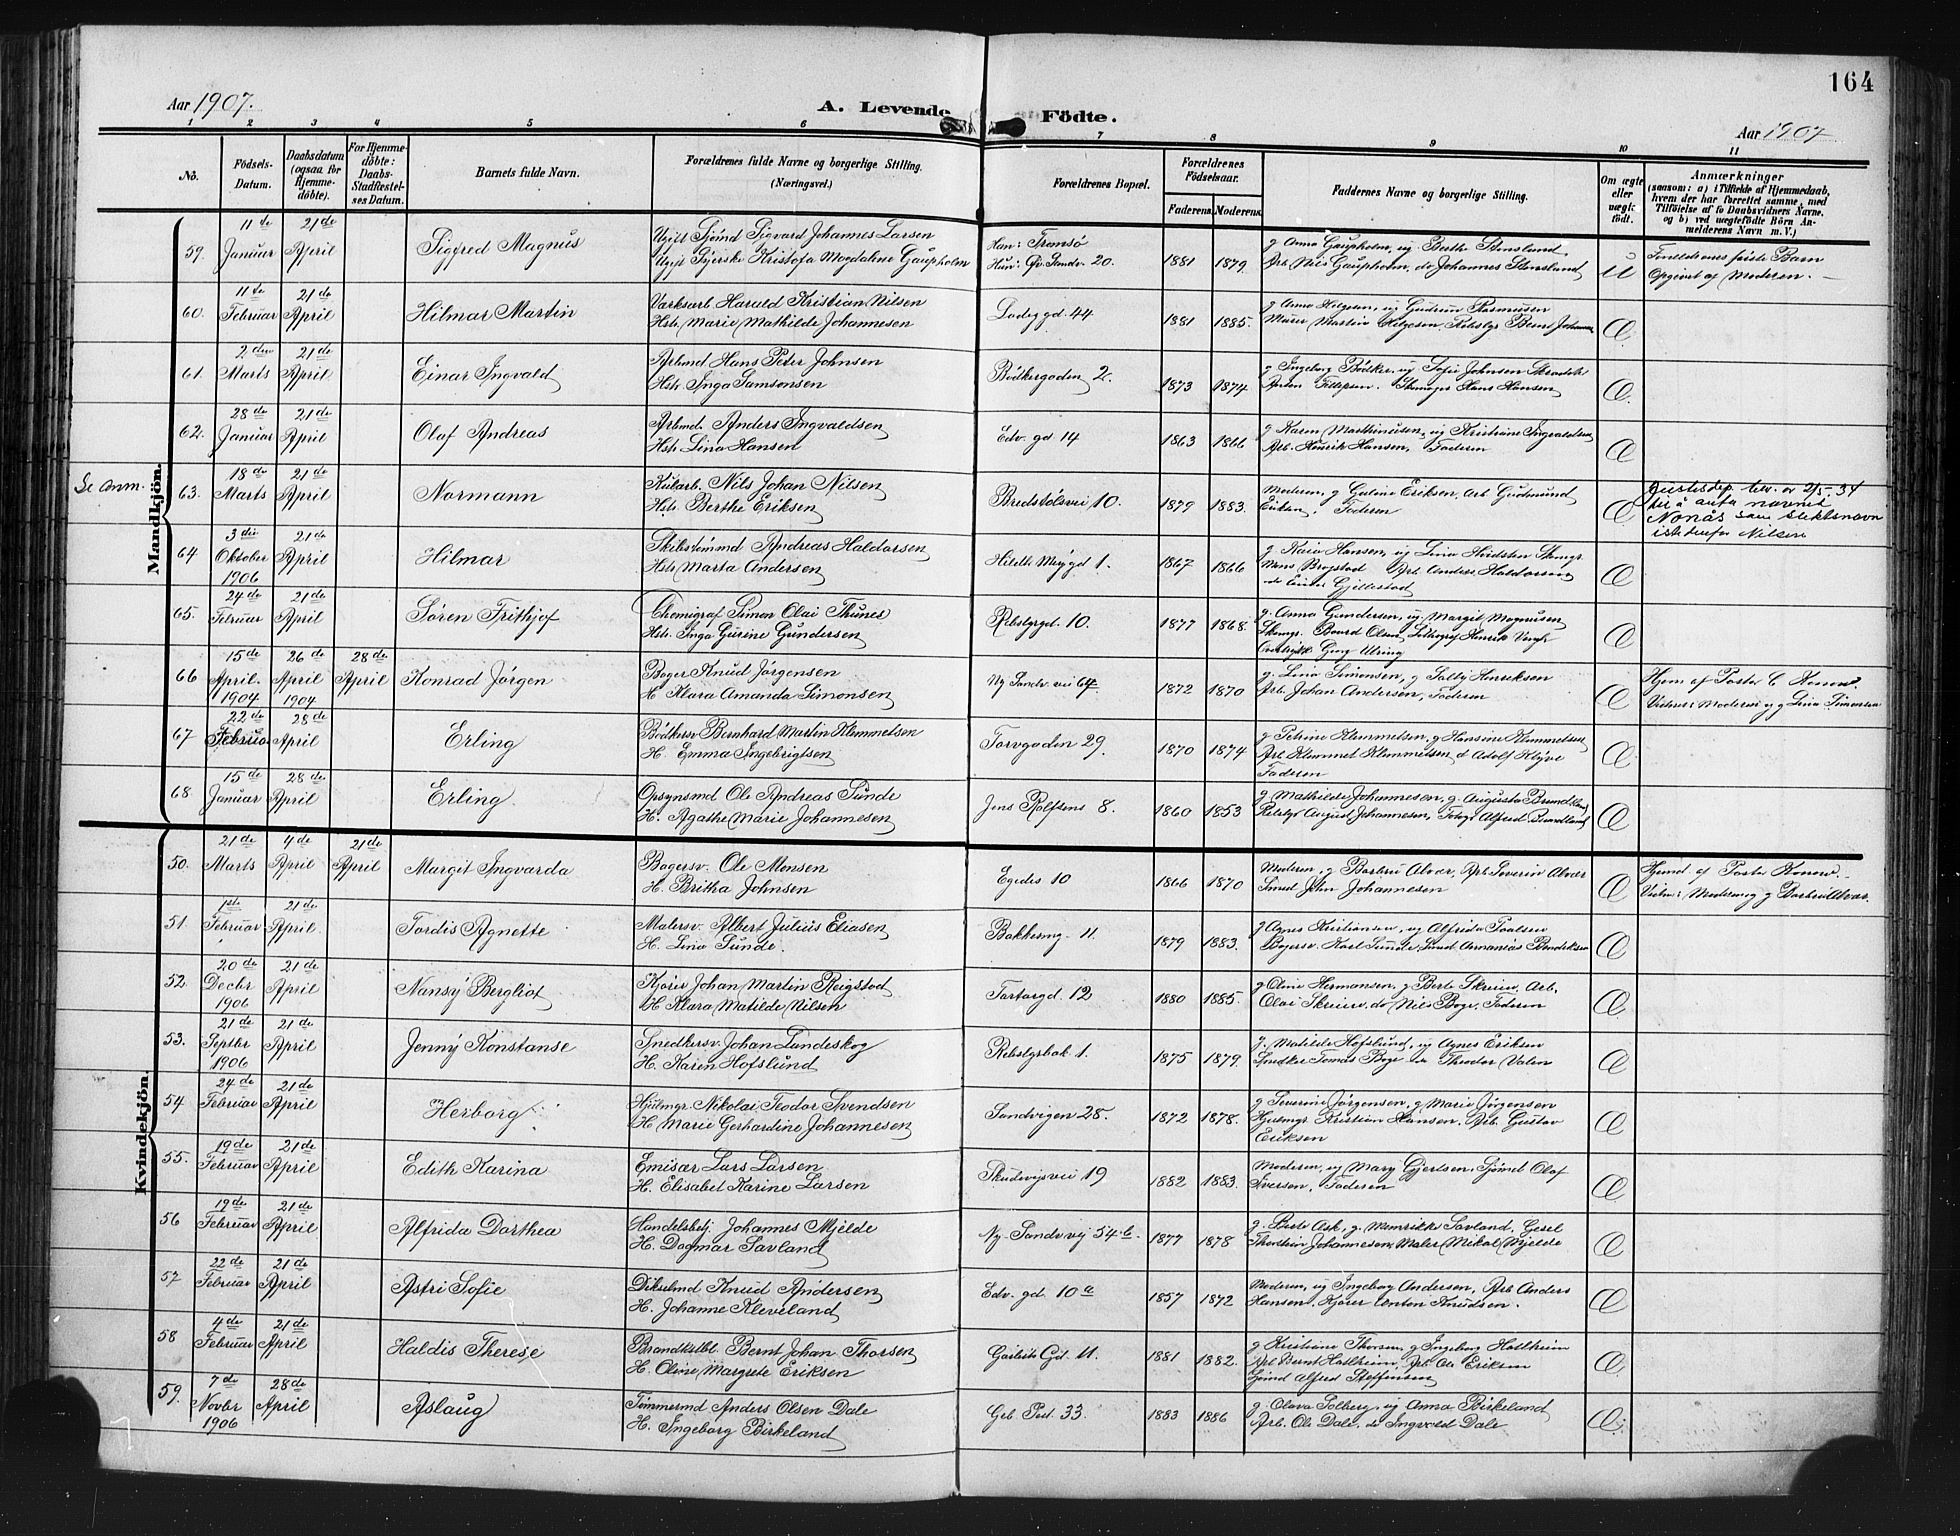 164
Aar 1907.
A. Levende Födte.
Aar 1907
1 2 3 4 5 6 7 8 9 10 11
No.
Födsels-Datum.
Daabsdatum (ogsaa for Hjemmedöbte).
For Hjemmedöbte: Daabs-Stadfæstelses Datum.
Barnets fulde Navn.
Forældrenes fulde Navne og borgerlige Stilling.
(Næringsvei.)
Forældrenes Bopæl.
Forældrenes Födselsaar.
Faderens. Moderens.
Faddernes Navne og borgerlige Stilling.
Om ægte eller uægte födt.
Anmærkninger
(saasom: a) i Tilfælde af Hjemmedaab,
hvem der har forrettet samme, med
Tilföielse af to Daabsvidners Navne,
og b) ved uægtefödte Börn Anmelderens Navn m. V.)
Mandkjön.
59. 11te Januar 21de April Sigfred Magnus
Ugift Sjömd Sigvard Johannes Larsen
Ugift Syerske Kristofa Magdalene Gaupholm
Han: Tromsö
Hun: Öv. Sandv. 20.
1881 1879.
g Anna Gaupholm, ug Berthe Stensland
Arb. Nils Gaupholm, do Johannes Stensland
U
Forældrenes første Barn
Opgivet af Moderen.
60. 11te Februar 21de April Hilmar Martin
Værksarb. Harald Kristian Nilsen
Hstr. Marie Mathilde Johannesen
Ladeg gd. 44
1881 1885.
g Anna Helgesen, ug Gudrun Rasmusen
Murer Martin Helgesen Rebslgr Bernt Johannesen
Æ
61. 2den Marts 21de April Einar Ingvald
Arbmd Hans Peter Johnsen
Hstr. Inga Samsonsen
Bödkergaden 2.
1873 1874
g Ingeborg Bödker, ug Sofie Johnsen
Anton Tellefsen. Skomager Hans Hansen
Æ
62. 28de Januar 21de April Olaf Andreas
Arbmd. Anders Ingvaldsen
Hstr. Lina Hansen
Edv. gd 14
1863 1866
g Karen Marthinusen, ug Kristiane Ingvaldsen
Arb. Henrik Hansen, Faderen
Æ
Se anm. 63. 18de Marts 21de April Normann
Kularb. Nils Johan Nilsen
Hstr. Berthe Eriksen
Bredstølsvei 10.
1879 1883.
Moderen, g Guline Eriksen, Arb Gudmund
Eriksen, Faderen
Æ
Justisdep. bev. av 2/5. 34
til å anta navnet
Nonås som slektsnavn
istedenfor Nilsen
64 3die Oktober 1906 21de April Hilmar
Skibstömmd Andreas Haldorsen
Hstr. Marta Andersen
1867 1866
g. Kaia Hansen, ug Lina Skmgr
Mons Brogstad Arb Anders Haldorsen
do Einar Gjellestad
Æ
65. 24de Februar 21de April Sören Frithjof
Chemigraf Simon Olai Thunes
Hstr. Inga Gurine Gundersen
Rebslgrgd. 10.
1877 1868.
g. Anna Gundersen, ug. Margit Magnusen
Skmgr. Baard Olsen, Lithograf Henrik
Georg Ulring
Æ
66 15de April. 1904 26de April 1904 28de April Konrad Jörgen
Bager Knud Jörgensen
H. Klara Amanda Simonsen
Ny Sandv vei 64
1872 1870
g. Lina Simonsen, g Salby Henriksen
Arb. Johan Andersen, Faderen
Æ
Hjem af Pastor C Konow.
Vidner: Moderen og g Lina Simonsen
67 22de Februar 28de April Erling
Bödkersv Bernhard Martin Klemmetsen
H. Emma Ingebrigtsen
Torvgaden 29.
1870 1874
g Petrine Klemmetsen, g Hansine Klemmetsen
Arb Klemmet Klemmetsen d Adolf Klyve
Faderen
Æ
68. 15de Januar 28de April Erling
Opsynsmd Ole Andreas Sunde
H. Agathe Marie Johannesen
Jens Rolfsens 8.
1860 1853
g. Mathilde Johannesen, g. Augusta Brundtland
Rebslgr August Johannesen, Fotogr Alfred Brundtland
Æ
Kvindekjön.
50. 21de Marts 4de April 21de April Margit Ingvarda
Bagersv. Ole Monsen
H. Britha Johnsen
Egedes 10
1866 1870
Moderen, g Barbru Alvær, Arb. Severin Alvær
Smed John Johannesen
Æ
Hjemd af Pastor Konow.
Vidner: Moderen og g Barbru Alvær.
51. 1ste Februar 21de April Tordis Agnette
Malersv. Albert Julius Eliasen
H. Lina Sunde.
Bakkesmg. 11.
1879 1883.
g Agnes Kristiansen, ug Alfrida Paalsen
Bagersv. Karl Sunde, Smed Armanias Bendiksen
Æ
52. 20de Decbr 1906 21de April Nansy Bergliot
Kjörer Johan Martin Reigstad
H. Klara Matilde Nilsen
Tartargd. 12
1880 1885.
g Oline Hermansen, g Berte Skreien, Arb.
Olai Skreien, do Nils Boge, Faderen
Æ
53. 21de Septbr 1906 21de April Jenny Konstanse
Snedkersv. Johan Lundeskog
H. Karen Hofslund
Rebslgrbak 1.
1875 1879.
g. Matilde Hofslund, ug Agnes Eriksen
Snedker Tomas Boge do Theodor Valen
Æ
54 24de Februar 21de April Herborg
Hjulmgr. Nikolai Teodor Svendsen
H. Marie Gerhardine Johannesen
Sandvigen 28.
1872 1878.
g Severine Jörgensen, g Marie Jörgensen
Hjulmgr Kristian Hansen, Arb. Gustav
Eriksen
Æ
55. 19de Februar 21de April Edith Karina
Emisær Lars Larsen
H. Elisabet Karine Larsen
Skudevigsvei 19
1882 1883.
Moderen, ug Mary Gjertsen, Sjömd Olaf
Iversen, Faderen
Æ
56 19de Februar 21de April Alfrida Dorthea
Handelsbetj. Johannes Mjelde
H. Dagmar Savland
Ny. Sandv vej 54 b.
1877 1878
g. Berte Ask, g. Savland, Gesel
Thorstein Johannesen, Maler Mikal Mjelde
Æ
57 22de Februar 21de April Astri Sofie
Dikselmd Knud Andersen
H. Johanne Kleveland
Edv. gd 10 a
1857 1872
Moderen, ug Ingeborg Andersen, Arb Anders
Hansen, Kjörer Anton Knudsen.
Æ
58 4de Februar 21de April Haldis Therese
Brandkstbl. Bernt Johan Thorsen
H. Oline Margrete Eriksen
Gd 11.
1881 1882.
g Kristiane Thorsen, g Ingeborg Hatlheim
Arb Bernt Hatlheim, Arb. Ole Eriksen
Sjömd Alfred Steffensen
Æ
59. 7de Novbr 1906 28de April Aslaug
Tömmermd Anders Olsen Dale
H. Ingeborg Birkeland
Geb Pod 33.
1883 1886
g. Olava Solberg, ug Anna Birkeland
Arb. Ole Dale, do Ingvald Dale
Æ